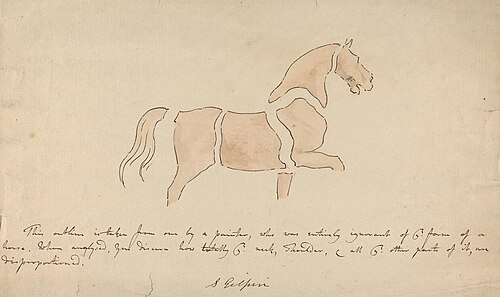 This outline is taken from one by a painter, who was entirely ignorant of ye. form of a
horse. When analysed, you discover how totally ye. neck, shoulder, & all ye. other parts of it, are
disproportioned.
S Gilpin